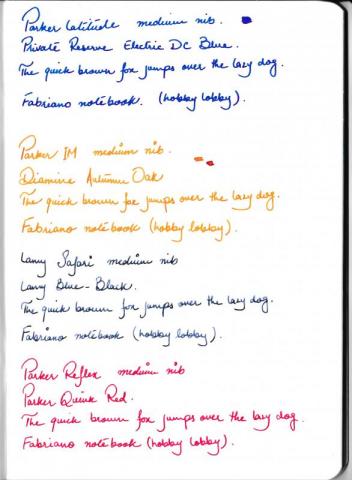 Parker Latitude medium nib.
Private Reserve Electric DC Blue.
The quick brown fox jumps over the lazy dog.
Fabriano notebook. (hobby lobby).
Parker IM medium nib.
Diamine Autumn Oak
The quick brown fox jumps over the lazy dog.
Fabriano notebook (hobby lobby).
Lamy Safari medium nib
Lamy Blue-Black.
The quick brown fox jumps over the lazy dog.
Fabriano notebook (hobby lobby).
Parker Reflex medium nib
Parker Quink Red.
The quick brown fox jumps over the lazy dog.
Fabriano notebook (hobby lobby).